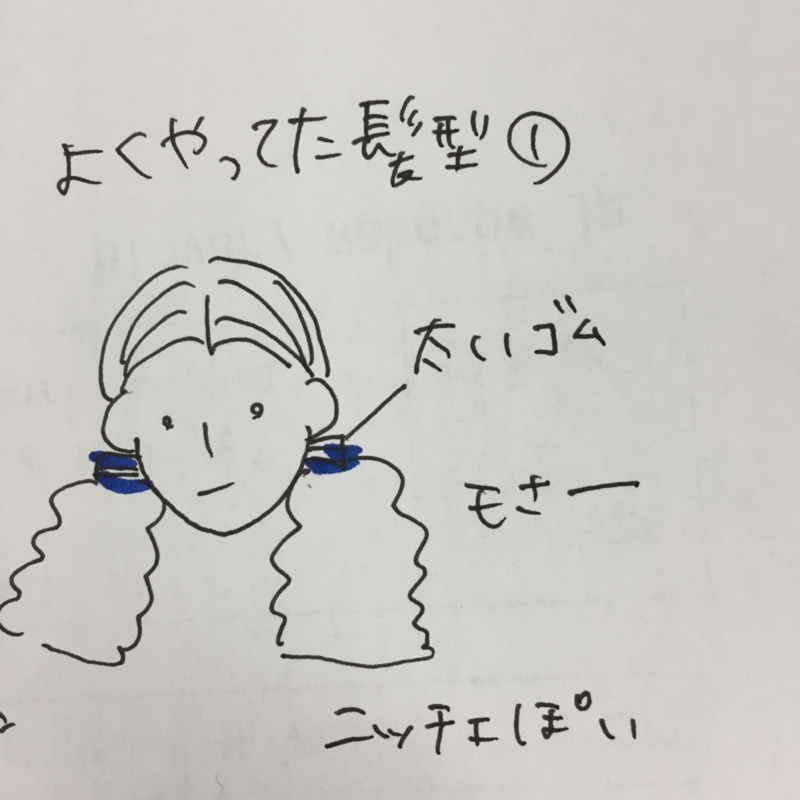 よくやってた髪型①
太いゴム
モさー
ニッチェぽい